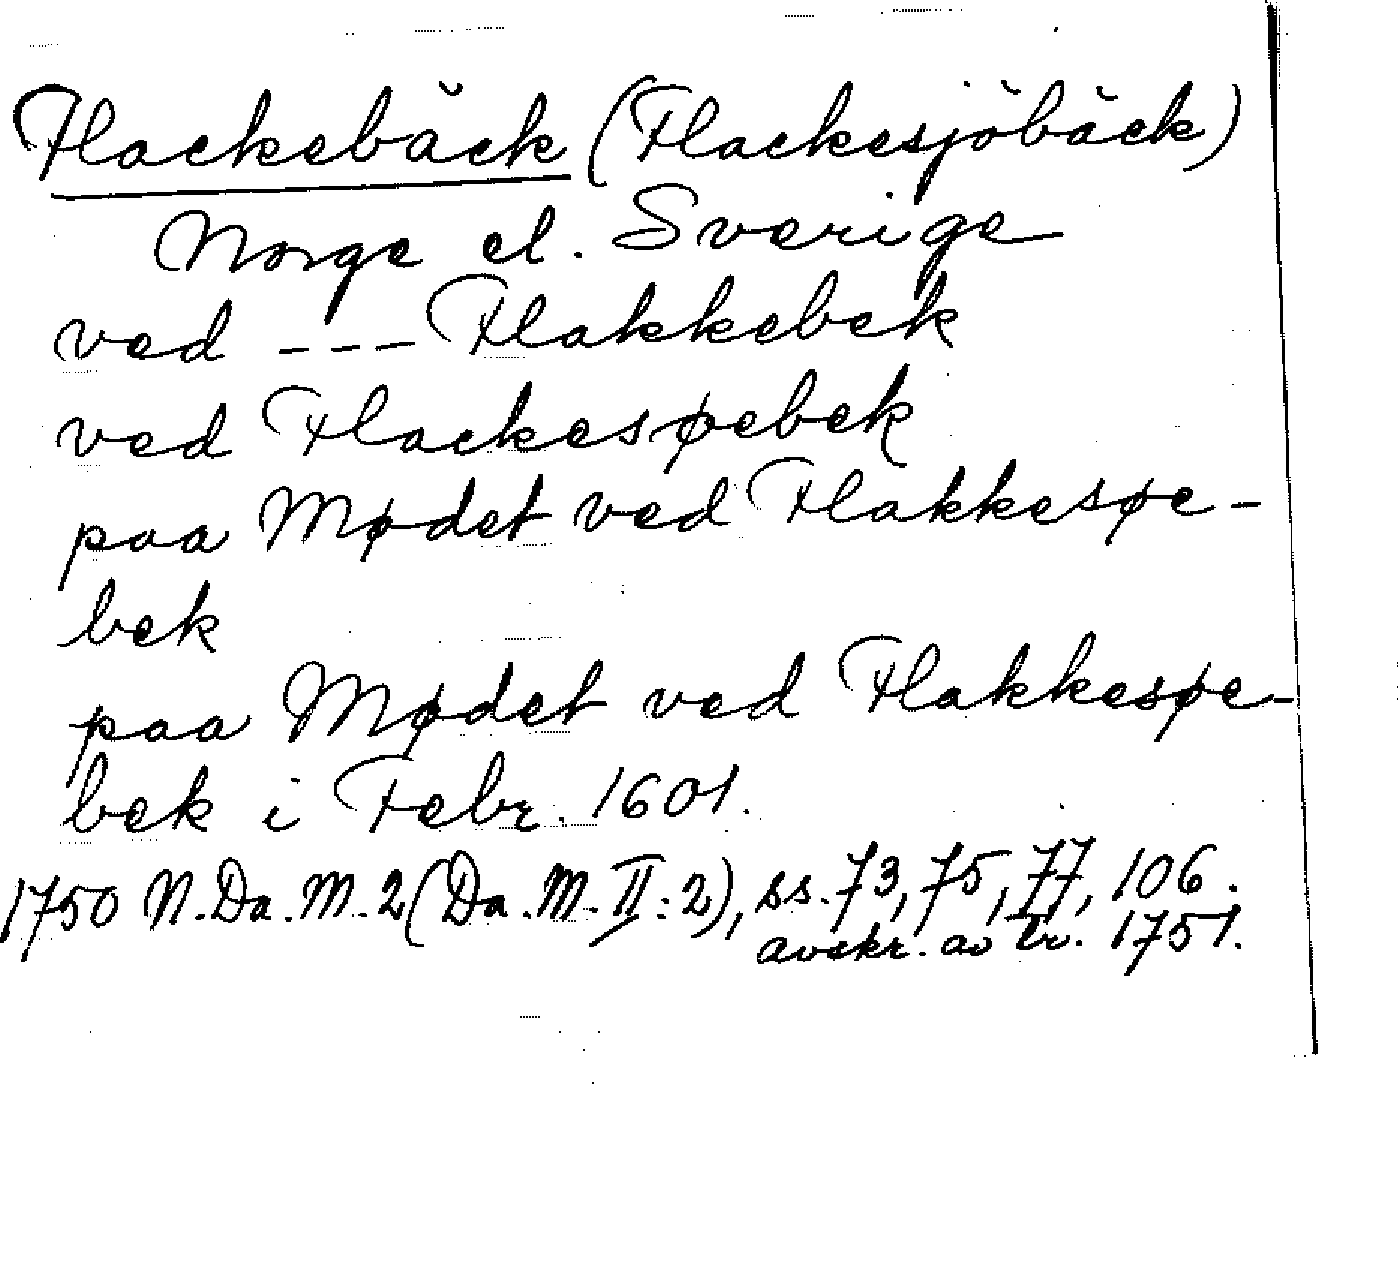 Flackebäck (Flackesjöbäck)
Norge el. Sverige
ved --- Flakkebek
ved Flackesøebek
paa Mødet ved Flakkesøe-
bek
paa Mødet ved Flakkesøe-
bek i Febr. 1601.
1750 N.Da.M.2(Da.M.II:2), ss.73,75,77,106.
avskr. av tr. 1751.